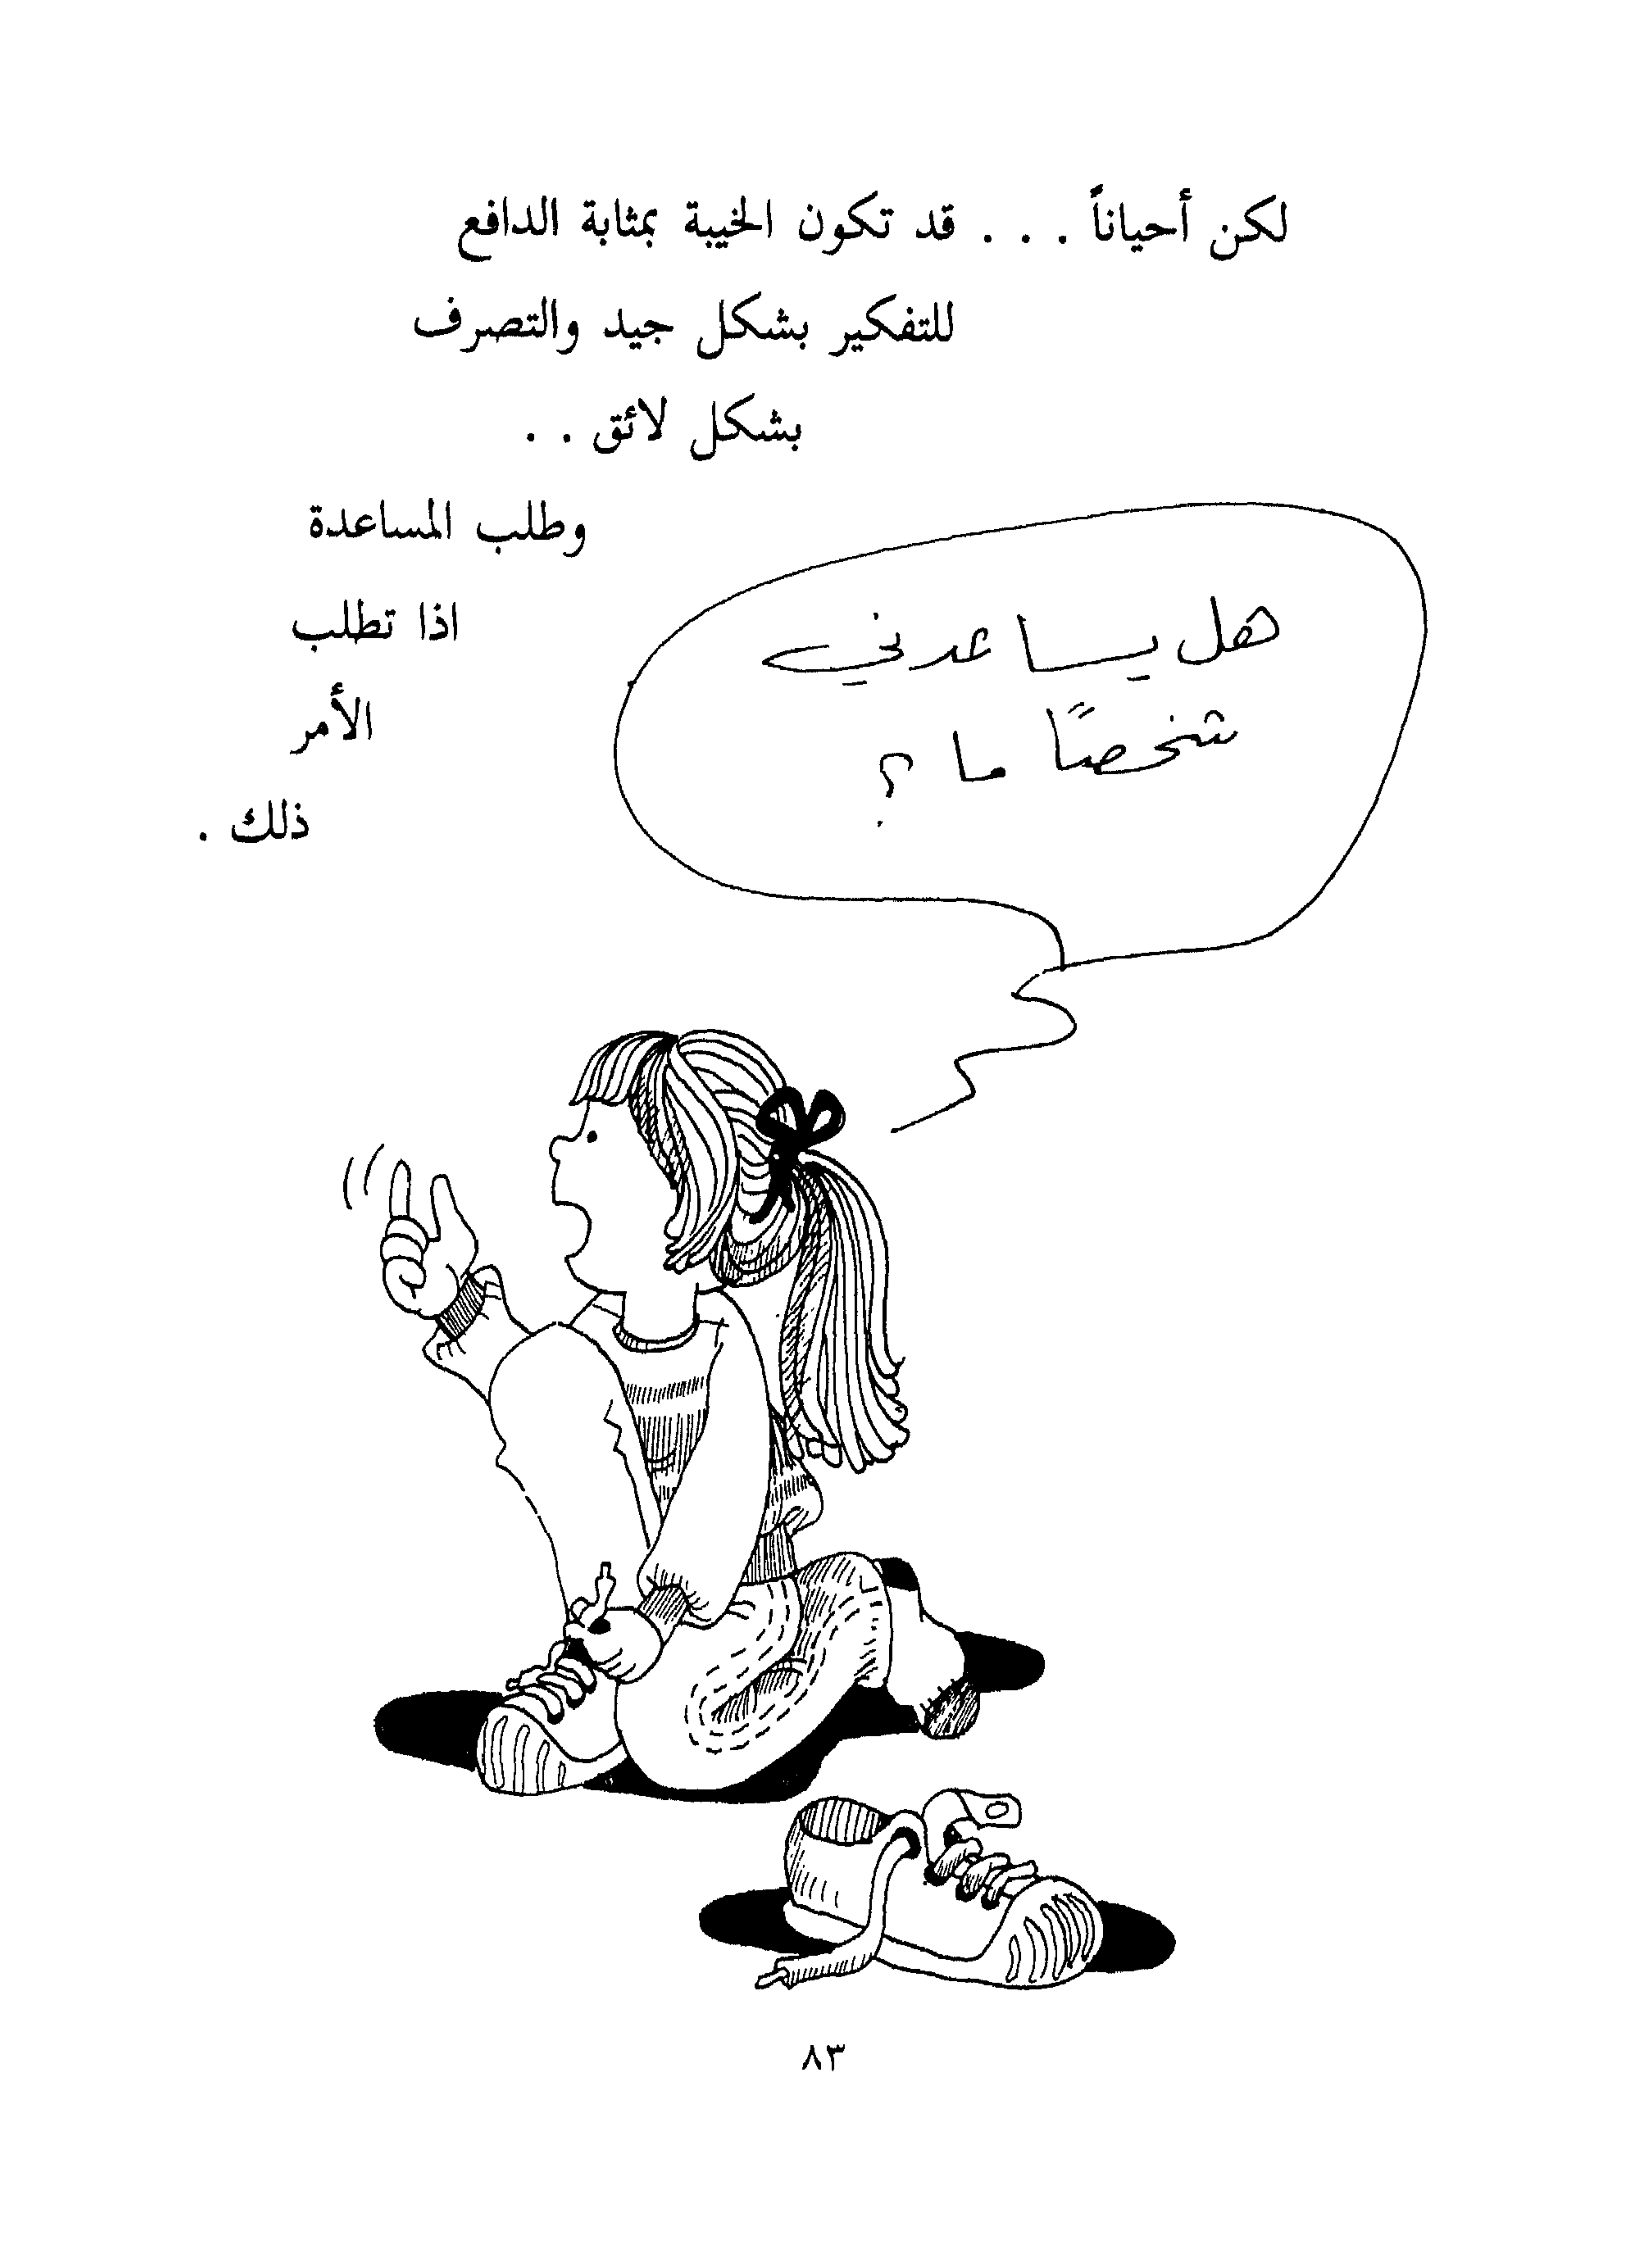 لكن أحياناً . . . قد تكون الخيبة بمثابة الدافع
للتفكير بشكل جيد والتصرف
بشكل لائق . .
وطلب المساعدة
اذا تطلب
الأمر
ذلك .
هل يساعدني
شخصًا ما ؟
٨٣